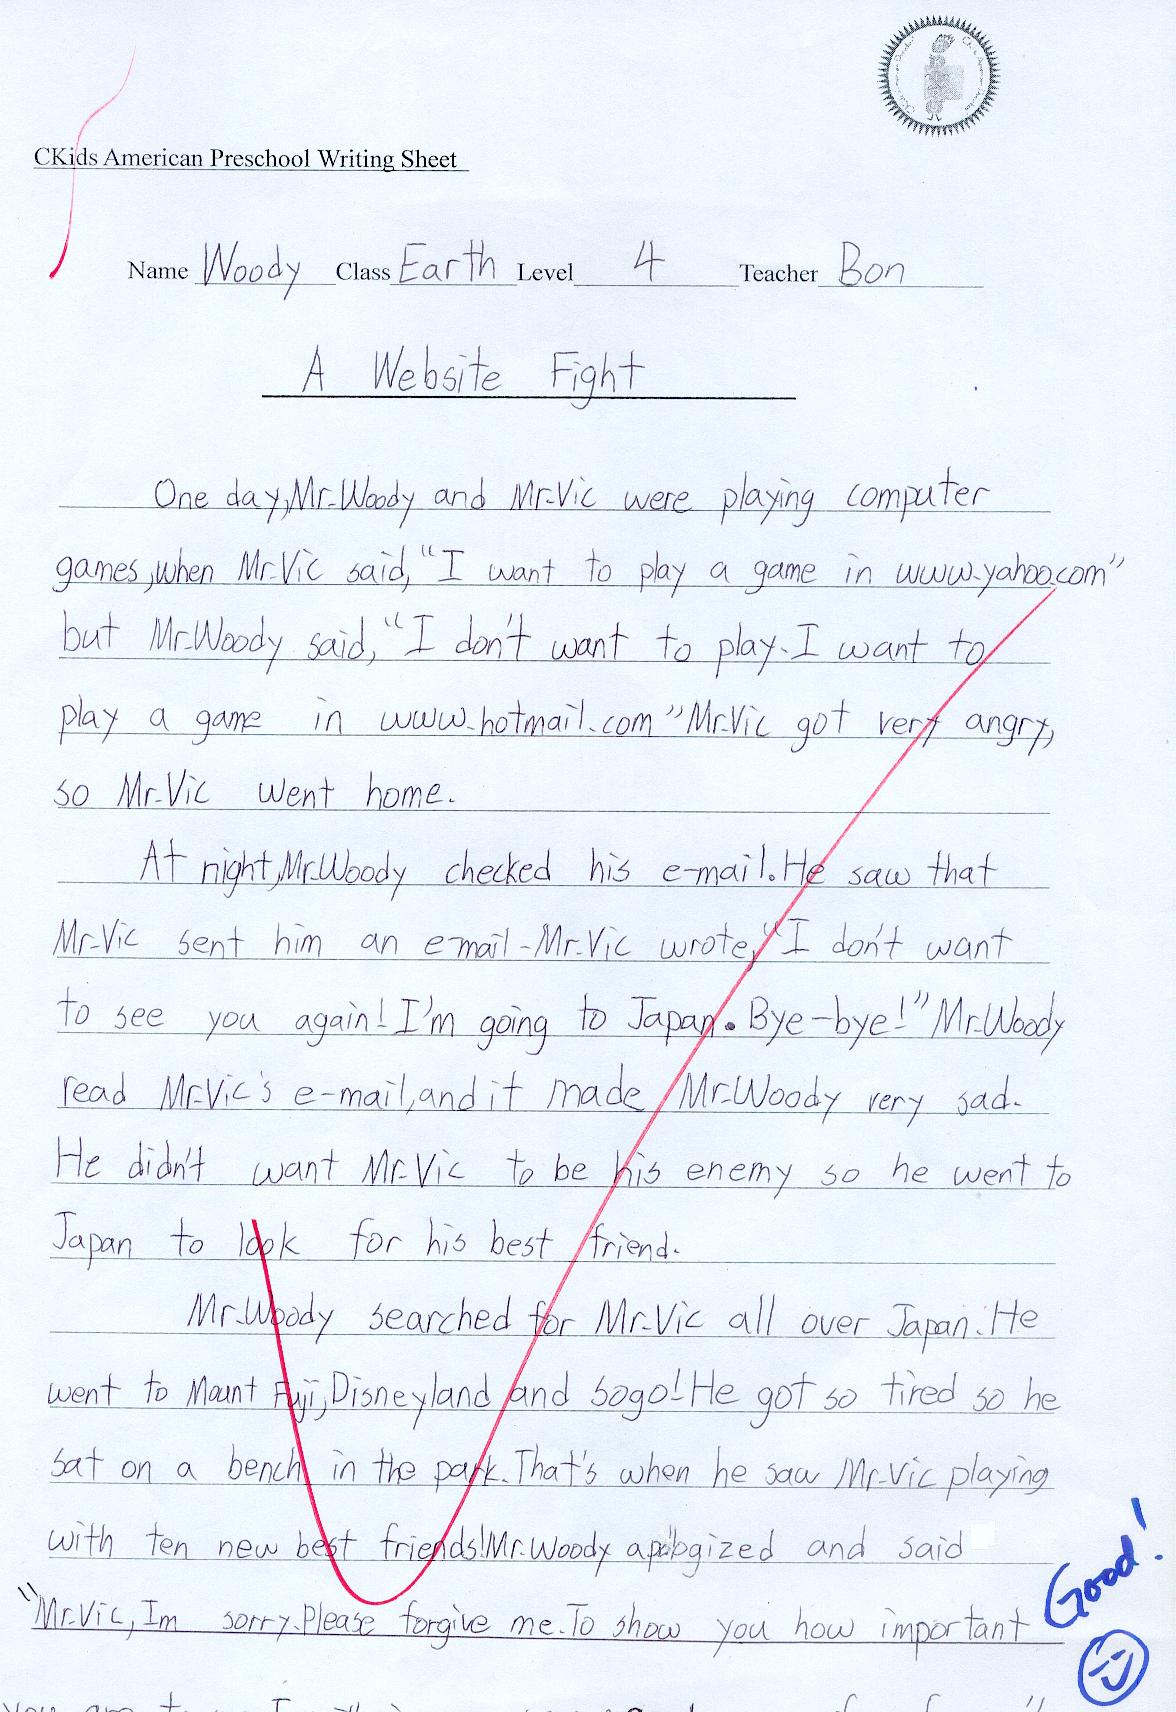 CKids American Preschool Writing Sheet
Name Woody Class Earth Level 4 Teacher Bon
A Website Fight
One day,Mr.Woody and Mr.Vic were playing computer
games,when Mr.Vic said,"I want to play a game in www.yahoo.com"
but Mr.Woody said,"I don't want to play.I want to
play a game in www.hotmail.com"Mr.Vic got very angry,
so Mr.Vic went home.
At night,Mr.Woody checked his e-mail.He saw that
Mr.Vic sent him an e-mail.Mr.Vic wrote,"I don't want
to see you again!I'm going to Japan.Bye-bye!"Mr.Woody
read Mr.Vic's e-mail,and it made Mr.Woody very sad.
He didn't want Mr.Vic to be his enemy so he went to
Japan to look for his best friend.
Mr.Woody searched for Mr.Vic all over Japan.He
went to Mount Fuji,Disneyland and Sogo!He got so tired so he
sat on a bench in the park.That's when he saw Mr.Vic playing
with ten new best friends!Mr.Woody apologized and said
"Mr.Vic,Im sorry.Please forgive me.To show you how important
Good!